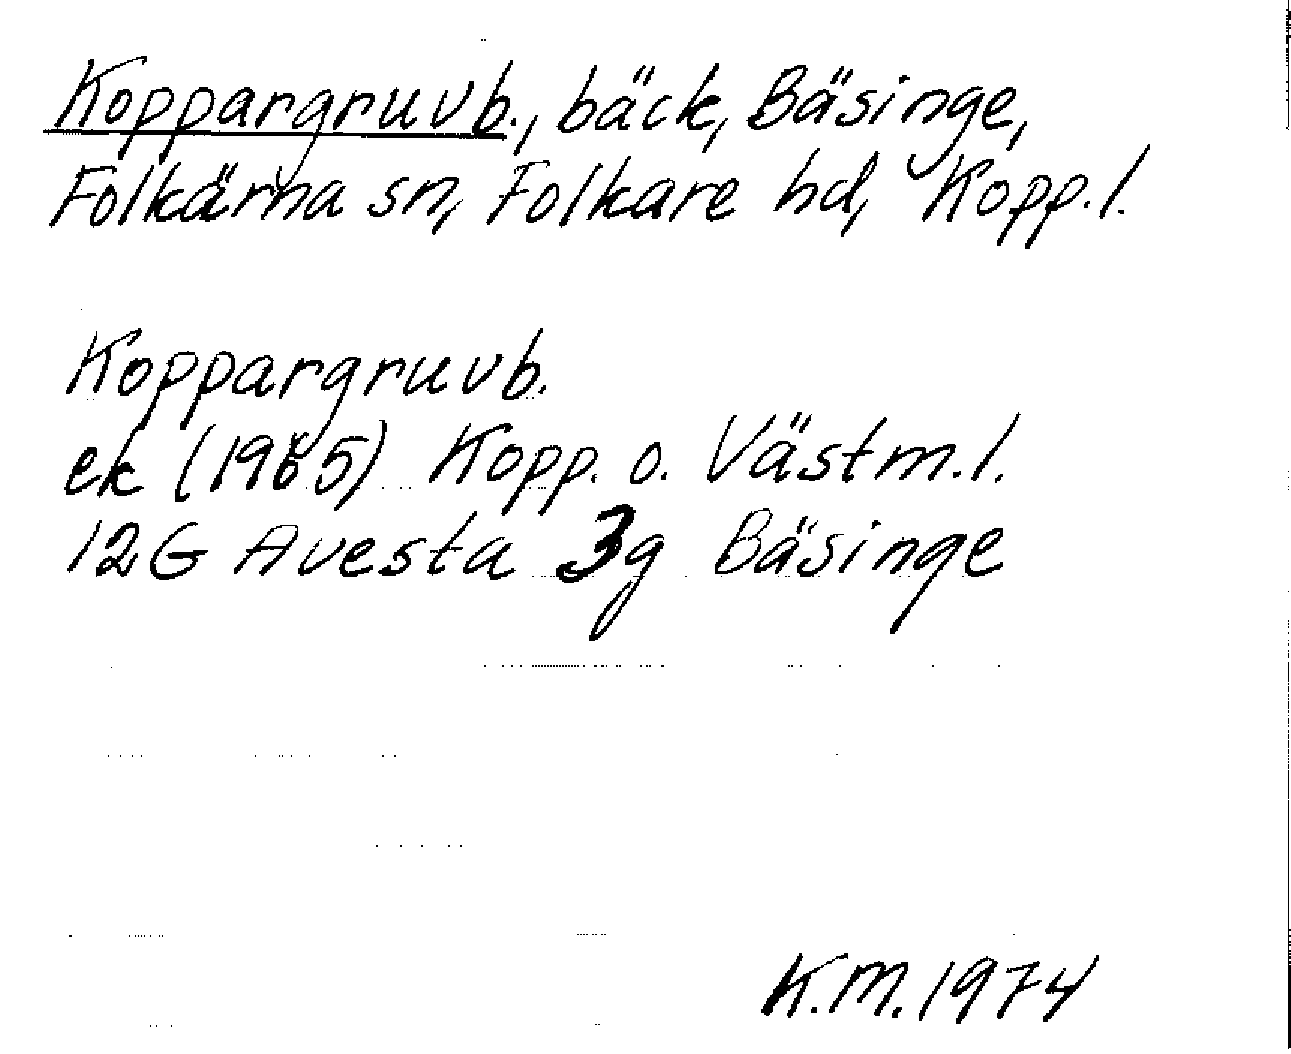 Koppargruvb., bäck, Bäsinge,
Folkärna sn, Folkare hd, Kopp. l.
Koppargruvb.
ek (1965) Kopp. o. Västm. l.
12G Avesta 3g Bäsinge
K.M. 1974